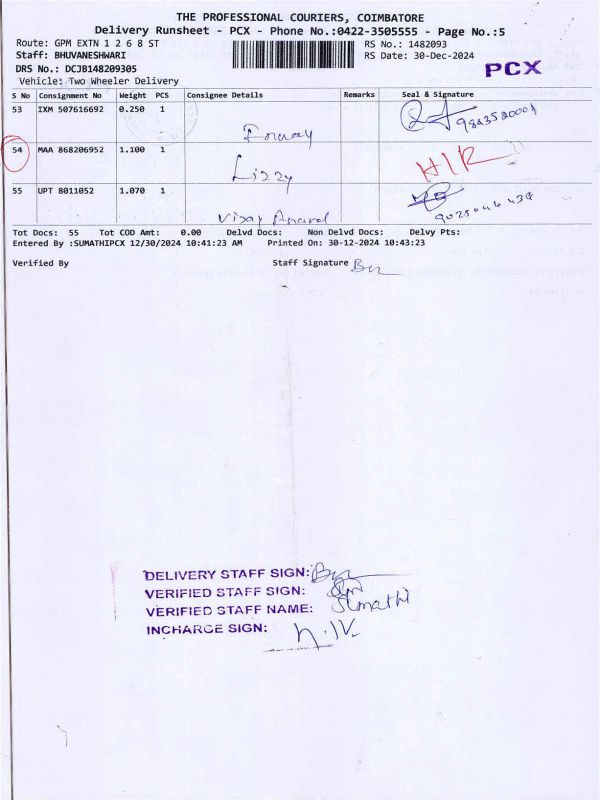 THE PROFESSIONAL COURIERS, COIMBATORE
Delivery Runsheet - PCX - Phone No.:0422-3505555 - Page No.:5
Route: GPM EXTN 1 2 6 8 ST RS No.: 1482093
Staff: BHUVANESHWARI RS Date: 30-Dec-2024
PCX
DRS No.: DCJB148209305
Vehicle: Two Wheeler Delivery
S No Consignment No Weight PCS Consignee Details Remarks Seal & Signature
53 IXM 507616692 0.250 1
54 MAA 868206952 1.100 1 Lizzy HIR
55 UPT 8011052 1.070 1 Vijay Anand
Tot Docs: 55 Tot COD Amt: 0.00 Delvd Docs: Non Delvd Docs: Delvy Pts:
Entered By :SUMATHIPCX 12/30/2024 10:41:23 AM Printed On: 30-12-2024 10:43:23
Verified By Staff Signature
DELIVERY STAFF SIGN:
VERIFIED STAFF SIGN:
VERIFIED STAFF NAME: Sumathi
INCHARGE SIGN: